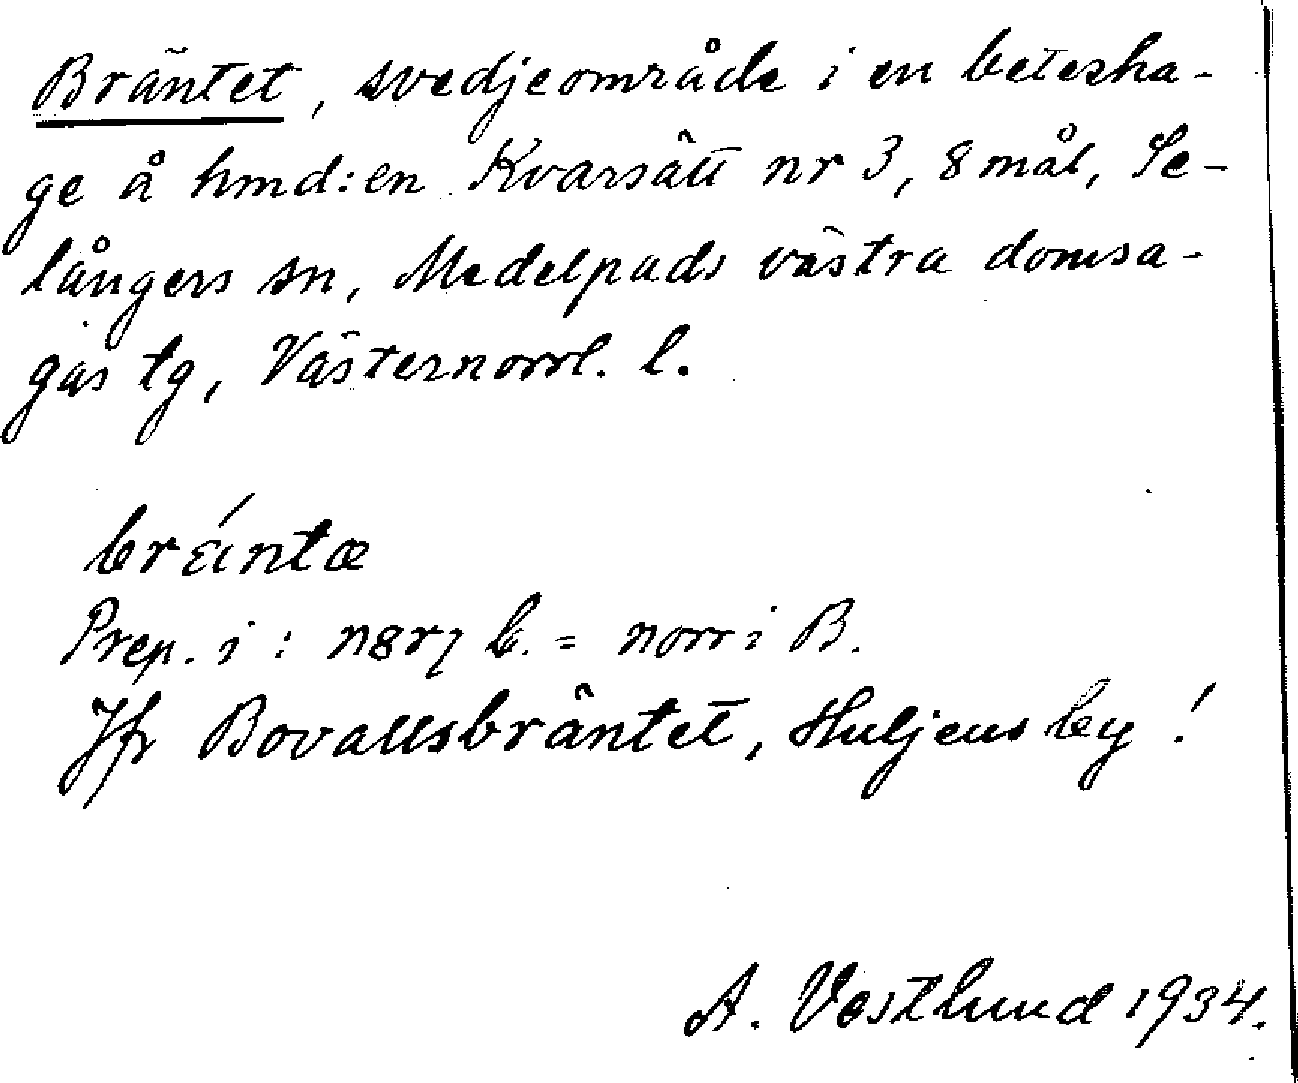 Bräntet, svedjeområde i en betesha-
ge å hmd:en Kvarsätt nr 3, 8 mål, Se-
långers sn, Medelpads västra domsa-
gas tg, Västernorrl. l.
brä́ntæ
Prep. i : n8rı b. = norr i B.
Jfr Bovallsbräntet, Huljens by !
A. Vestlund 1934.